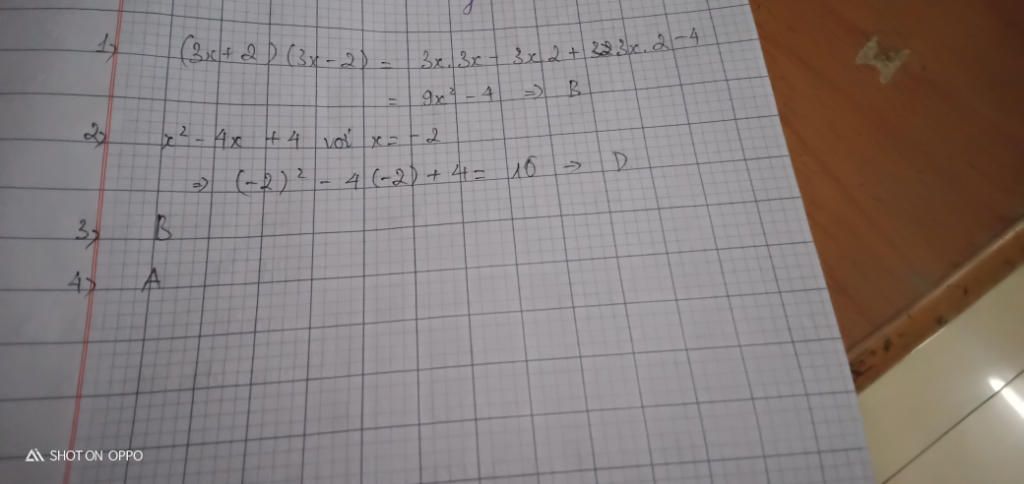 1) (3x+2) (3x-2) = 3x.3x - 3x.2 + 3x.2 - 4
= 9x² - 4 => B
2) x² - 4x + 4 với x = -2
=> (-2)² - 4(-2) + 4 = 16 -> D
3) B
4) A
SHOT ON OPPO